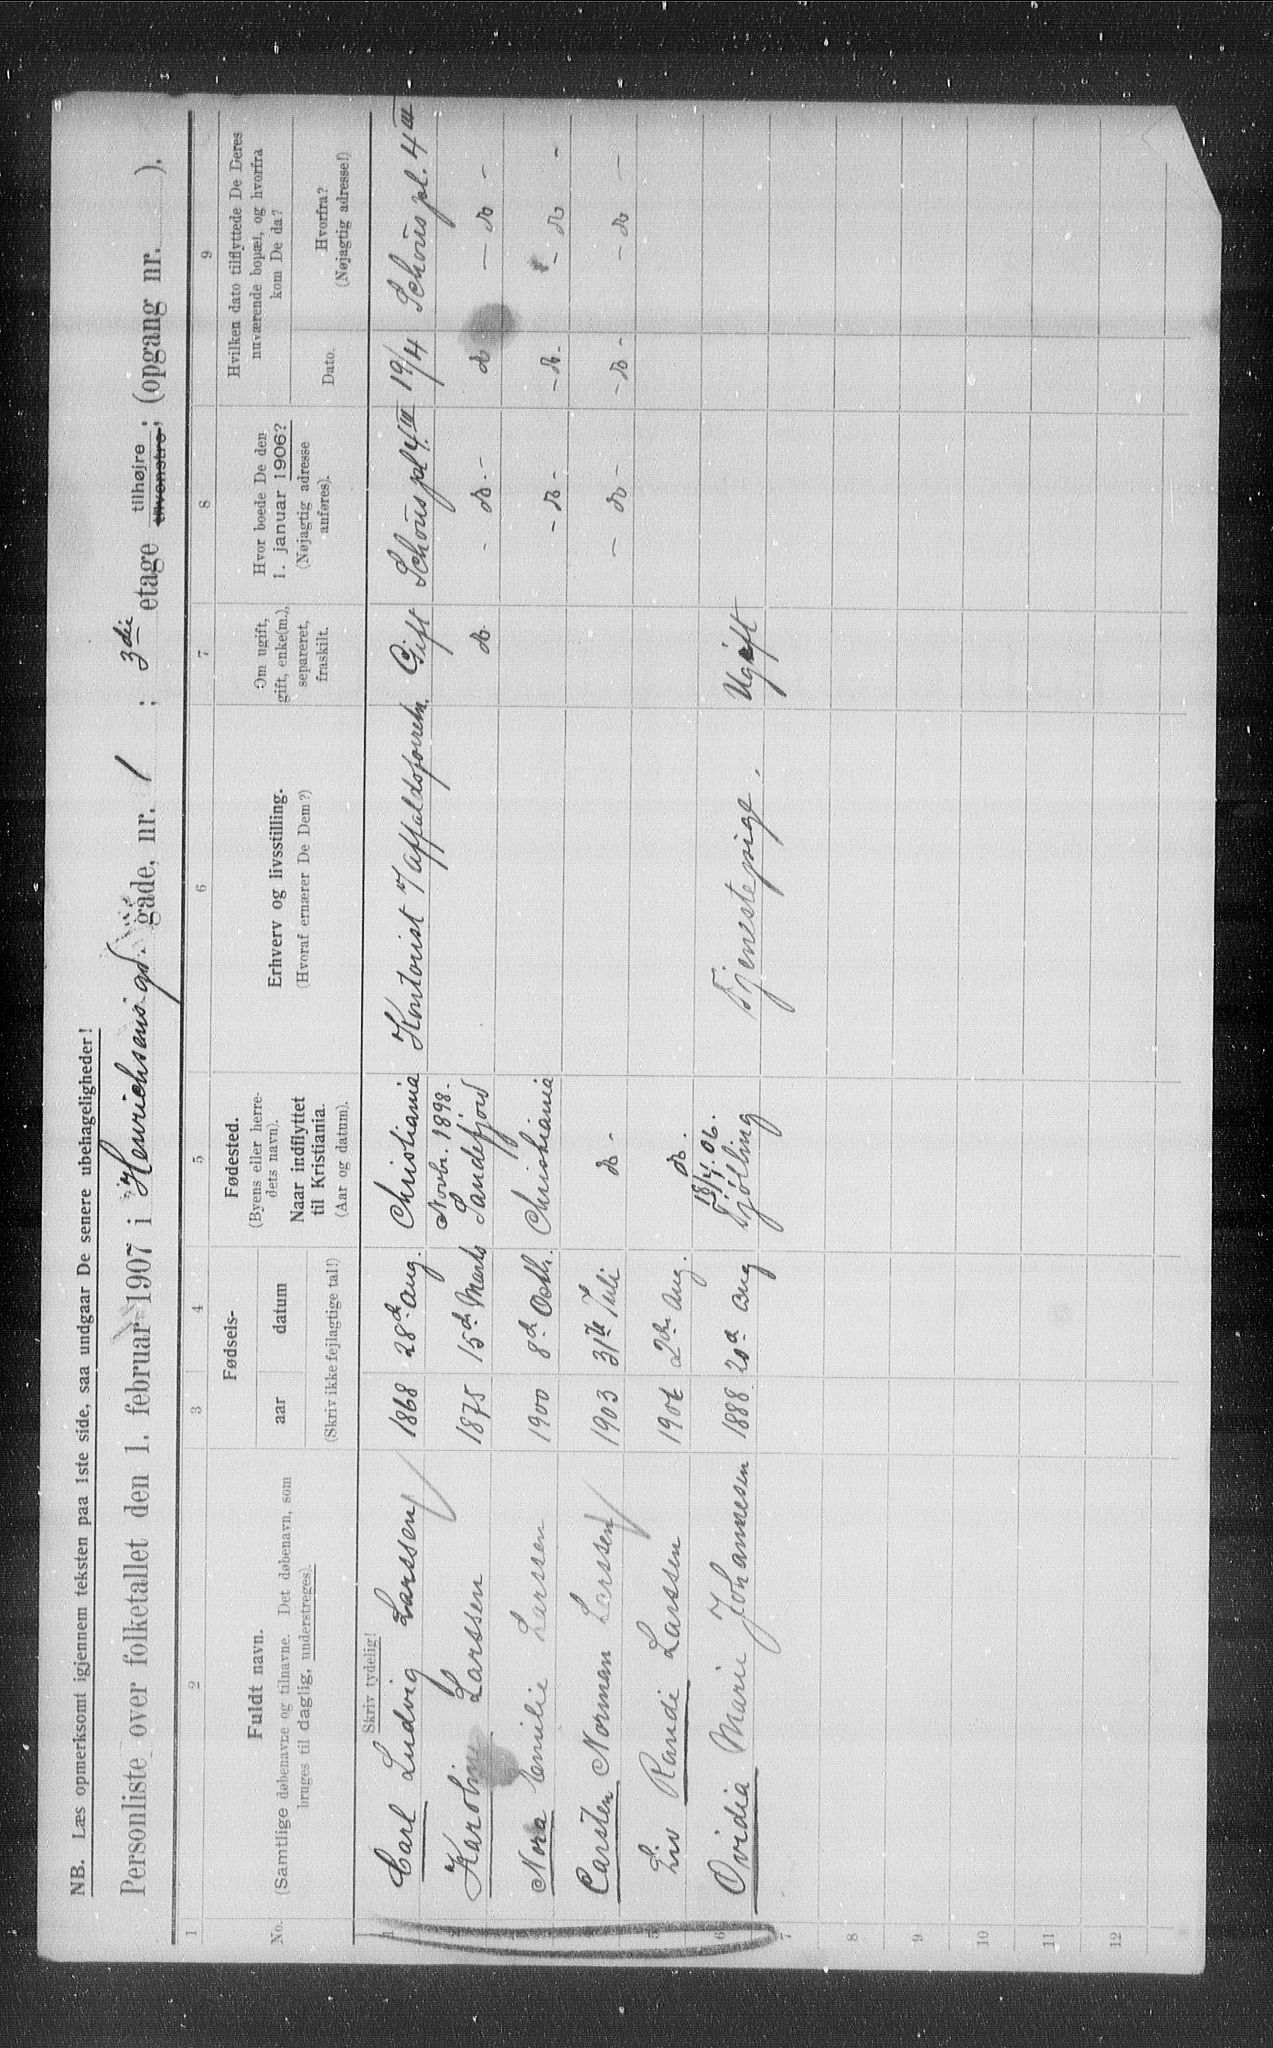 NB. Læs opmerksomt igjennem teksten paa 1ste side, saa undgaar De senere ubehageligheder!
Personliste over folketallet den 1. februar 1907 i Henrichsens gd. gade, nr. 1 ; 3die etage tilhøjre tilvenstre; (opgang nr. ).
1 2 3 4 5 6 7 8 9
No.
Fuldt navn.
(Samtlige døbenavne og tilnavne. Det døbenavn, som
bruges til daglig, understreges).
Fødsels-
aar datum
(Skriv ikke fejlagtige tal!)
Fødested.
(Byens eller herre-
dets navn).
Naar indflyttet
til Kristiania.
(Aar og datum).
Erhverv og livsstilling.
(Hvoraf ernærer De Dem?)
Om ugift,
gift, enke(m.),
separeret,
fraskilt.
Hvor boede De den
1. januar 1906?
(Nøjagtig adresse
anføres).
Hvilken dato tilflyttede De Deres
nuværende bopæl, og hvorfra
kom De da?
Dato.
Hvorfra?
(Nøjagtig adresse!)
Skriv tydelig!
1 Carl Ludvig Larssen 1868 28de Aug. Christiania Kontorist i Affaldsforretn. Gift Schous pl 4 III 19/4 Schous pl. 4 III
Novbr. 1898.
2 Karoline Larssen 1875 15de Marts Sandefjord do. - do. - do - do -
3 Nora Emilie Larssen 1900 8de Octbr. Christiania - do - - do. - - do -
4 Carsten Norman Larssen 1903 31te Juli do - - do - - do - - do -
5 Liv Randi Larssen 1906 2den Aug. do.
18/4. 06.
6 Ovidia Marie Johannesen 1888 20de Aug Tjølling Tjenestepige. Ugift
7
8
9
10
11
12